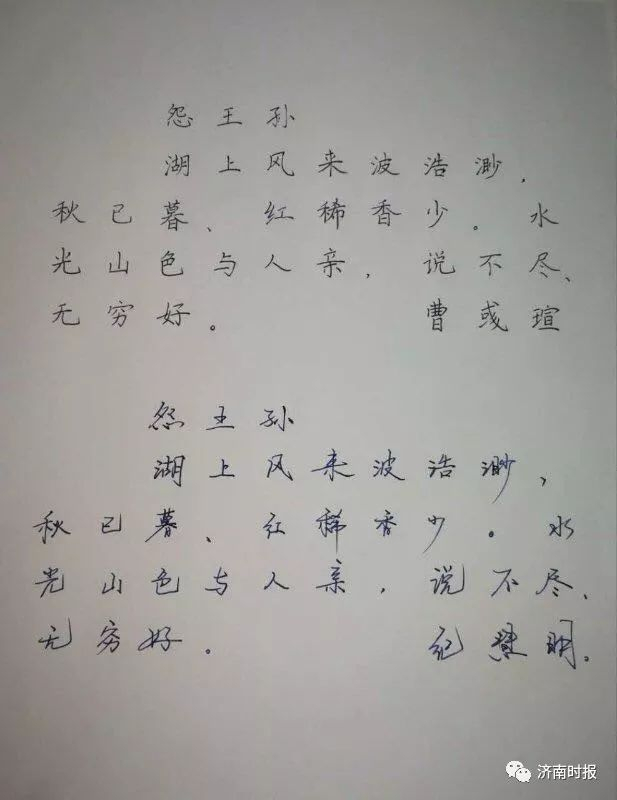 怨王孙
湖上风来波浩渺，
秋已暮、红稀香少。水
光山色与人亲，说不尽、
无穷好。 曹彧瑄
怨王孙
湖上风来波浩渺，
秋已暮、红稀香少。水
光山色与人亲，说不尽、
无穷好。 纪慧明。
济南时报